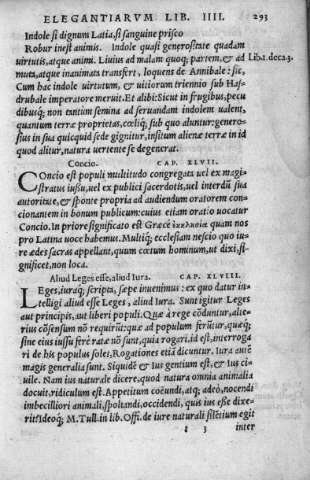 ELEGANTIARVM LIB. IIII. 293
Indole si dignum Latia, si sanguine prisco
Robur inest animis. Indole quasi generositate quadam
uirtutis, atque animi. Liuius ad malam quoq; partem, & ad Lib.1.deca.3.
muta, atque inanimata transfert, loquens de Annibale: sic,
Cum hac indole uirtutum, & uitiorum triennio sub Has-
drubale imperatore meruit. Et alibi: Sicut in frugibus, pecu
dibusq; non tantùm semina ad seruandam indolem ualent,
quantum terræ proprietas, cœliq́; sub quo aluntur: genero-
sius in sua quicquid sede gignitur, insitum alienæ terræ in id
quod alitur, natura uertente se degenerat.
Concio. CAP. XLVII.
COncio est populi multitudo congregata uel ex magi-
stratus iussu, uel ex publici sacerdotis, uel interdũ sua
autoritate, & sponte propria ad audiendum oratorem con-
cionantem in bonum publicum: cuius etiam oratio uocatur
Concio. In priore significato est Græcè ἐκκλησία quam nos
pro Latina uoce habemus. Multiq́; ecclesiam nescio quo iu-
re ædes sacras appellant, quum cœtum hominum, ut dixi, si-
gnificet, non loca.
Aliud Leges esse, aliud Iura. CAP. XLVIII.
LEges, iuraq́; scripta, sæpe inuenimus: ex quo datur in-
telligi aliud esse Leges, aliud Iura. Sunt igitur Leges
aut principis, aut liberi populi. Quæ à rege cõduntur, alte-
rius cõsensum nõ requirũt: quæ ad populum ferũtur, quæq́;
sine eius iussu ferè ratæ nõ sunt, quia rogari, id est, interroga
ri de his populus solet, Rogationes etiã dicuntur. Iura autẽ
magis generalia sunt. Siquidẽ & ius gentium est, & ius ci-
uile. Nam ius naturale dicere, quod natura omnia animalia
docuit, ridiculum est. Appetitum coëundi, atq; adeò, nocendi
imbecilliori animali, spoliandi, occidendi, quis ius esse dixe-
rit? Ideoq́; M. Tull. in lib. Offi. de iure naturali silẽtium egit
t 3 inter